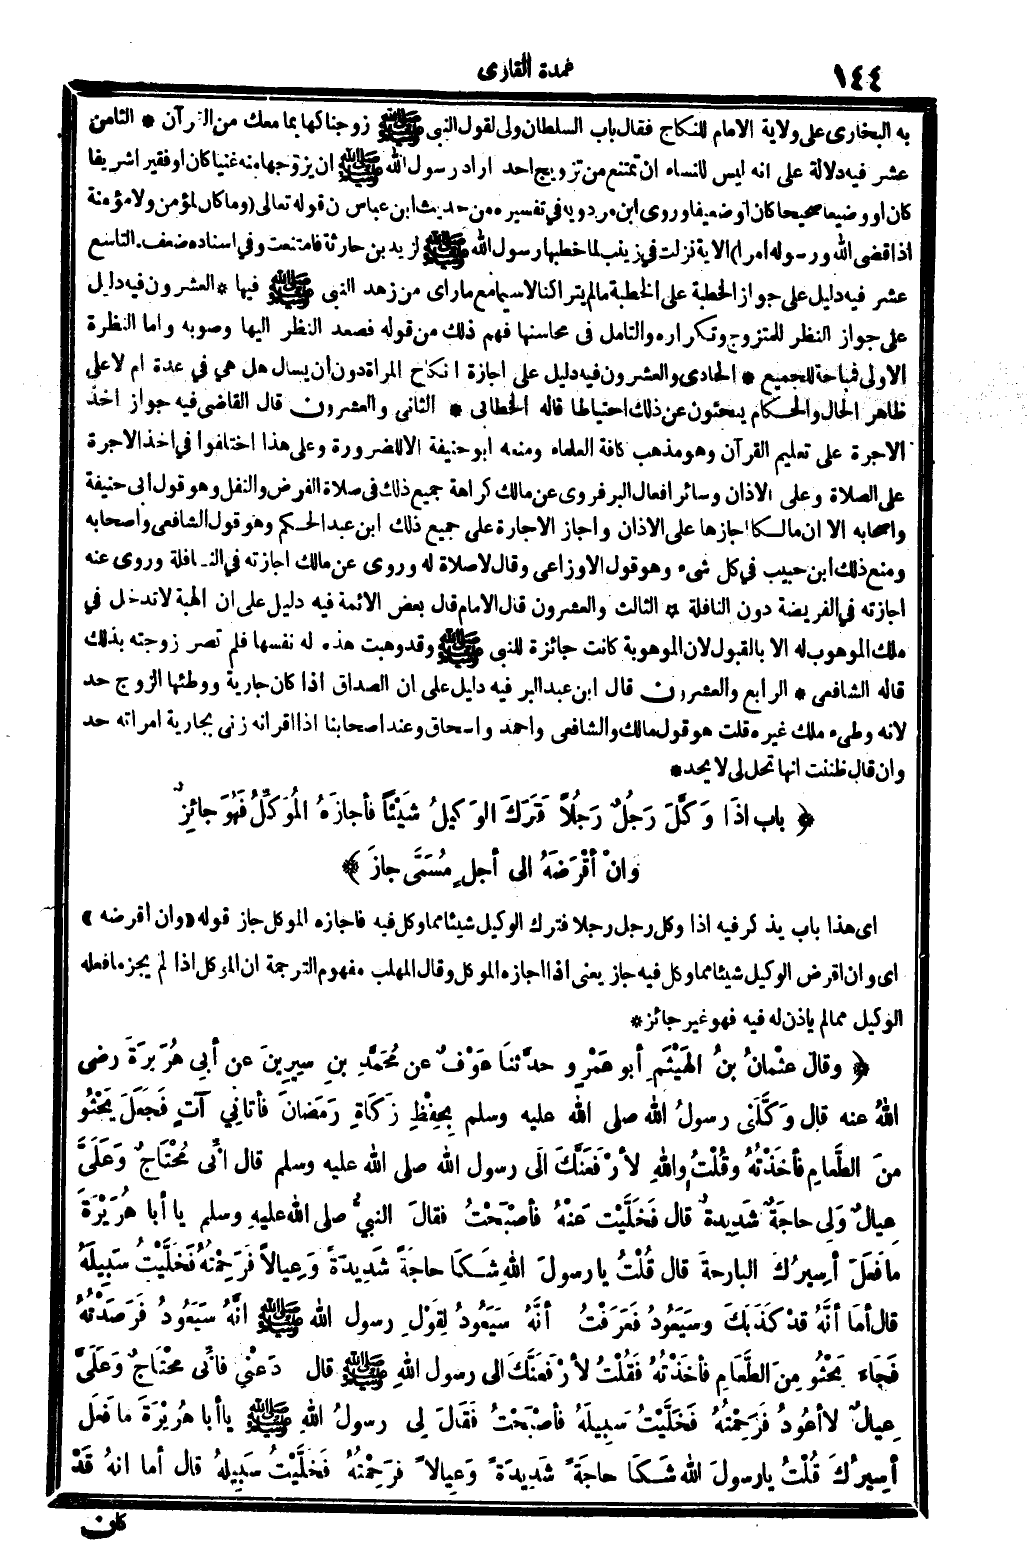 ١٤٤
عمدة القارى
به البخارى على ولاية الامام للنكاح فقال باب السلطان ولى لقول النبى ﷺ زوجناكها بما معك من القرآن * الثامن
عشر فيه دلالة على انه ليس للنساء ان تمتنع من تزويج احد اراد رسول الله ﷺ ان يزوجها منه غنيا كان او فقير اشريفا
كان او وضيعا صحيحا كان او ضعيفا وروى ابن مردويه في تفسيره من حديث ابن عباس ن قوله تعالى (وما كان لمؤمن ولا مؤمنة
اذا قضى الله ورسوله أمرا) الاية نزلت في زينب لما خطبها رسول الله ﷺ لزيد بن حارثة فامتنعت وفي اسناده ضعف. التاسع
عشر فيه دليل على جواز الخطبة على الخطبة مالم يتراكنا لاسيما مع ما راى من زهد النبى ﷺ فيها * العشرون فيه دليل
على جواز النظر للمتزوج وتكراره والتامل فى محاسنها فهم ذلك من قوله فصعد النظر اليها وصوبه واما النظرة
الاولى فمباحة للجميع * الحادى والعشرون فيه دليل على اجازة انكاح المراة دون ان يسال هل هي في عدة ام لا على
ظاهر الحال والحكام يبحثون عن ذلك احتياطا قاله الخطابى * الثانى والعشرون قال القاضى فيه جواز اخذ
الاجرة على تعليم القرآن وهو مذهب كافة العلماء ومنعه ابو حنيفة الا للضرورة وعلى هذا اختلفوا في اخذ الاجرة
على الصلاة وعلى الاذان وسائر افعال البر فروى عن مالك كراهة جميع ذلك فى صلاة الفرض والنفل وهو قول ابى حنيفة
واصحابه الا ان مالكا اجازها على الاذان واجاز الاجارة على جميع ذلك ابن عبد الحكم وهو قول الشافعى واصحابه
ومنع ذلك ابن حبيب في كل شىء وهو قول الاوزاعى وقال لاصلاة له وروى عن مالك اجازته في النافلة وروى عنه
اجازته في الفريضة دون النافلة * الثالث والعشرون قال الامام قال بعض الائمة فيه دليل على ان الهبة لا تدخل في
ملك الموهوب له الا بالقبول لان الموهوبة كانت جائزة للنبى ﷺ وقد وهبت هذه له نفسها فلم تصر زوجته بذلك
قاله الشافعى * الرابع والعشرون قال ابن عبد البر فيه دليل على ان الصداق اذا كان جارية ووطئها الزوج حد
لانه وطىء ملك غيره قلت هو قول مالك والشافعى واحمد واسحاق وعند اصحابنا اذا اقر انه زنى بجارية امراته حد
وان قال ظننت انها تحل لى لا يحد *
﴿ باب اذَا وَكَّلَ رَجُلٌ رَجُلاً فَتَرَكَ الوَكِيلُ شَيْئاً فأجازَهُ المُوَكِّلُ فَهُوَ جائِزٌ
وَانْ أقْرَضَهُ الى أجلٍ مُسَمًّى جازَ ﴾
اى هذا باب يذكر فيه اذا وكل رجل رجلا فترك الوكيل شيئا مما وكل فيه فاجازه الموكل جاز قوله «وان أقرضه»
اى وان اقرض الوكيل شيئا مما وكل فيه جاز يعنى اذا اجازه الموكل وقال المهلب مفهوم الترجمة ان الموكل اذا لم يجز ما فعله
الوكيل ممالم ياذن له فيه فهو غير جائز *
﴿ وقال عثْمانُ بنُ الهَيْثَمِ أبو عَمْرٍو حدَّثنا عَوْفٌ عن مُحَمَّدِ بنِ سِيرِينَ عن أبِي هُرَيرَةَ رضى
اللهُ عنه قال وَكَّلَنى رسولُ الله صلى الله عليه وسلم بِحِفْظِ زَكَاةِ رَمَضانَ فأتانِي آتٍ فَجَعَلَ يَحْثُو
منَ الطَّعامِ فأخَذْتُهُ وقُلْتُ واللهِ لأرْفَعَنَّكَ الَى رسول الله صلى الله عليه وسلم قال انِّى مُحْتَاجٌ وَعَلَىَّ
عِيالٌ وَلِى حاجةٌ شَدِيدةٌ قال فَخَلَّيْتُ عَنْهُ فأصْبَحْتُ فقالَ النبيُّ صلى الله عليهِ وسلم يا أبا هرَيْرَةَ
ما فَعَلَ أسِيرُكَ البارحةَ قال قُلْتُ يا رسولَ اللهِ شَكا حاجةً شَدِيدَةً وَعِيالاً فَرَحِمْتُهُ فَخَلَّيْتُ سَبِيلَهُ
قال أما أنَّهُ قدْ كَذَبَكَ وسَيَعُودُ فَعَرَفْتُ أنَّهُ سَيَعُودُ لِقَوْلِ رسول الله ﷺ انَّهُ سَيَعُودُ فَرَصَدْتُهُ
فَجَاءَ يَحْثُو مِنَ الطَّعامِ فأخَذْتُهُ فَقُلْتُ لأرْفَعَنَّكَ الى رسول اللهِ ﷺ قال دَعْنِي فانِّى مُحْتاجٌ وَعَلَىَّ
عِيالٌ لا أعُودُ فَرَحِمْتُهُ فَخَلَّيْتُ سَبِيلَهُ فأصْبَحْتُ فَقَالَ لِى رسولُ اللهِ ﷺ يا أبا هُرَيْرَةَ ما فَعَلَ
أسِيرُكَ قُلْتُ يا رسولَ الله شَكَا حاجَةً شَدِيدَةً وَعِيالاً فَرَحِمْتُهُ فَخَلَّيْتُ سَبِيلهُ قال أما انهُ قَدْ
كان